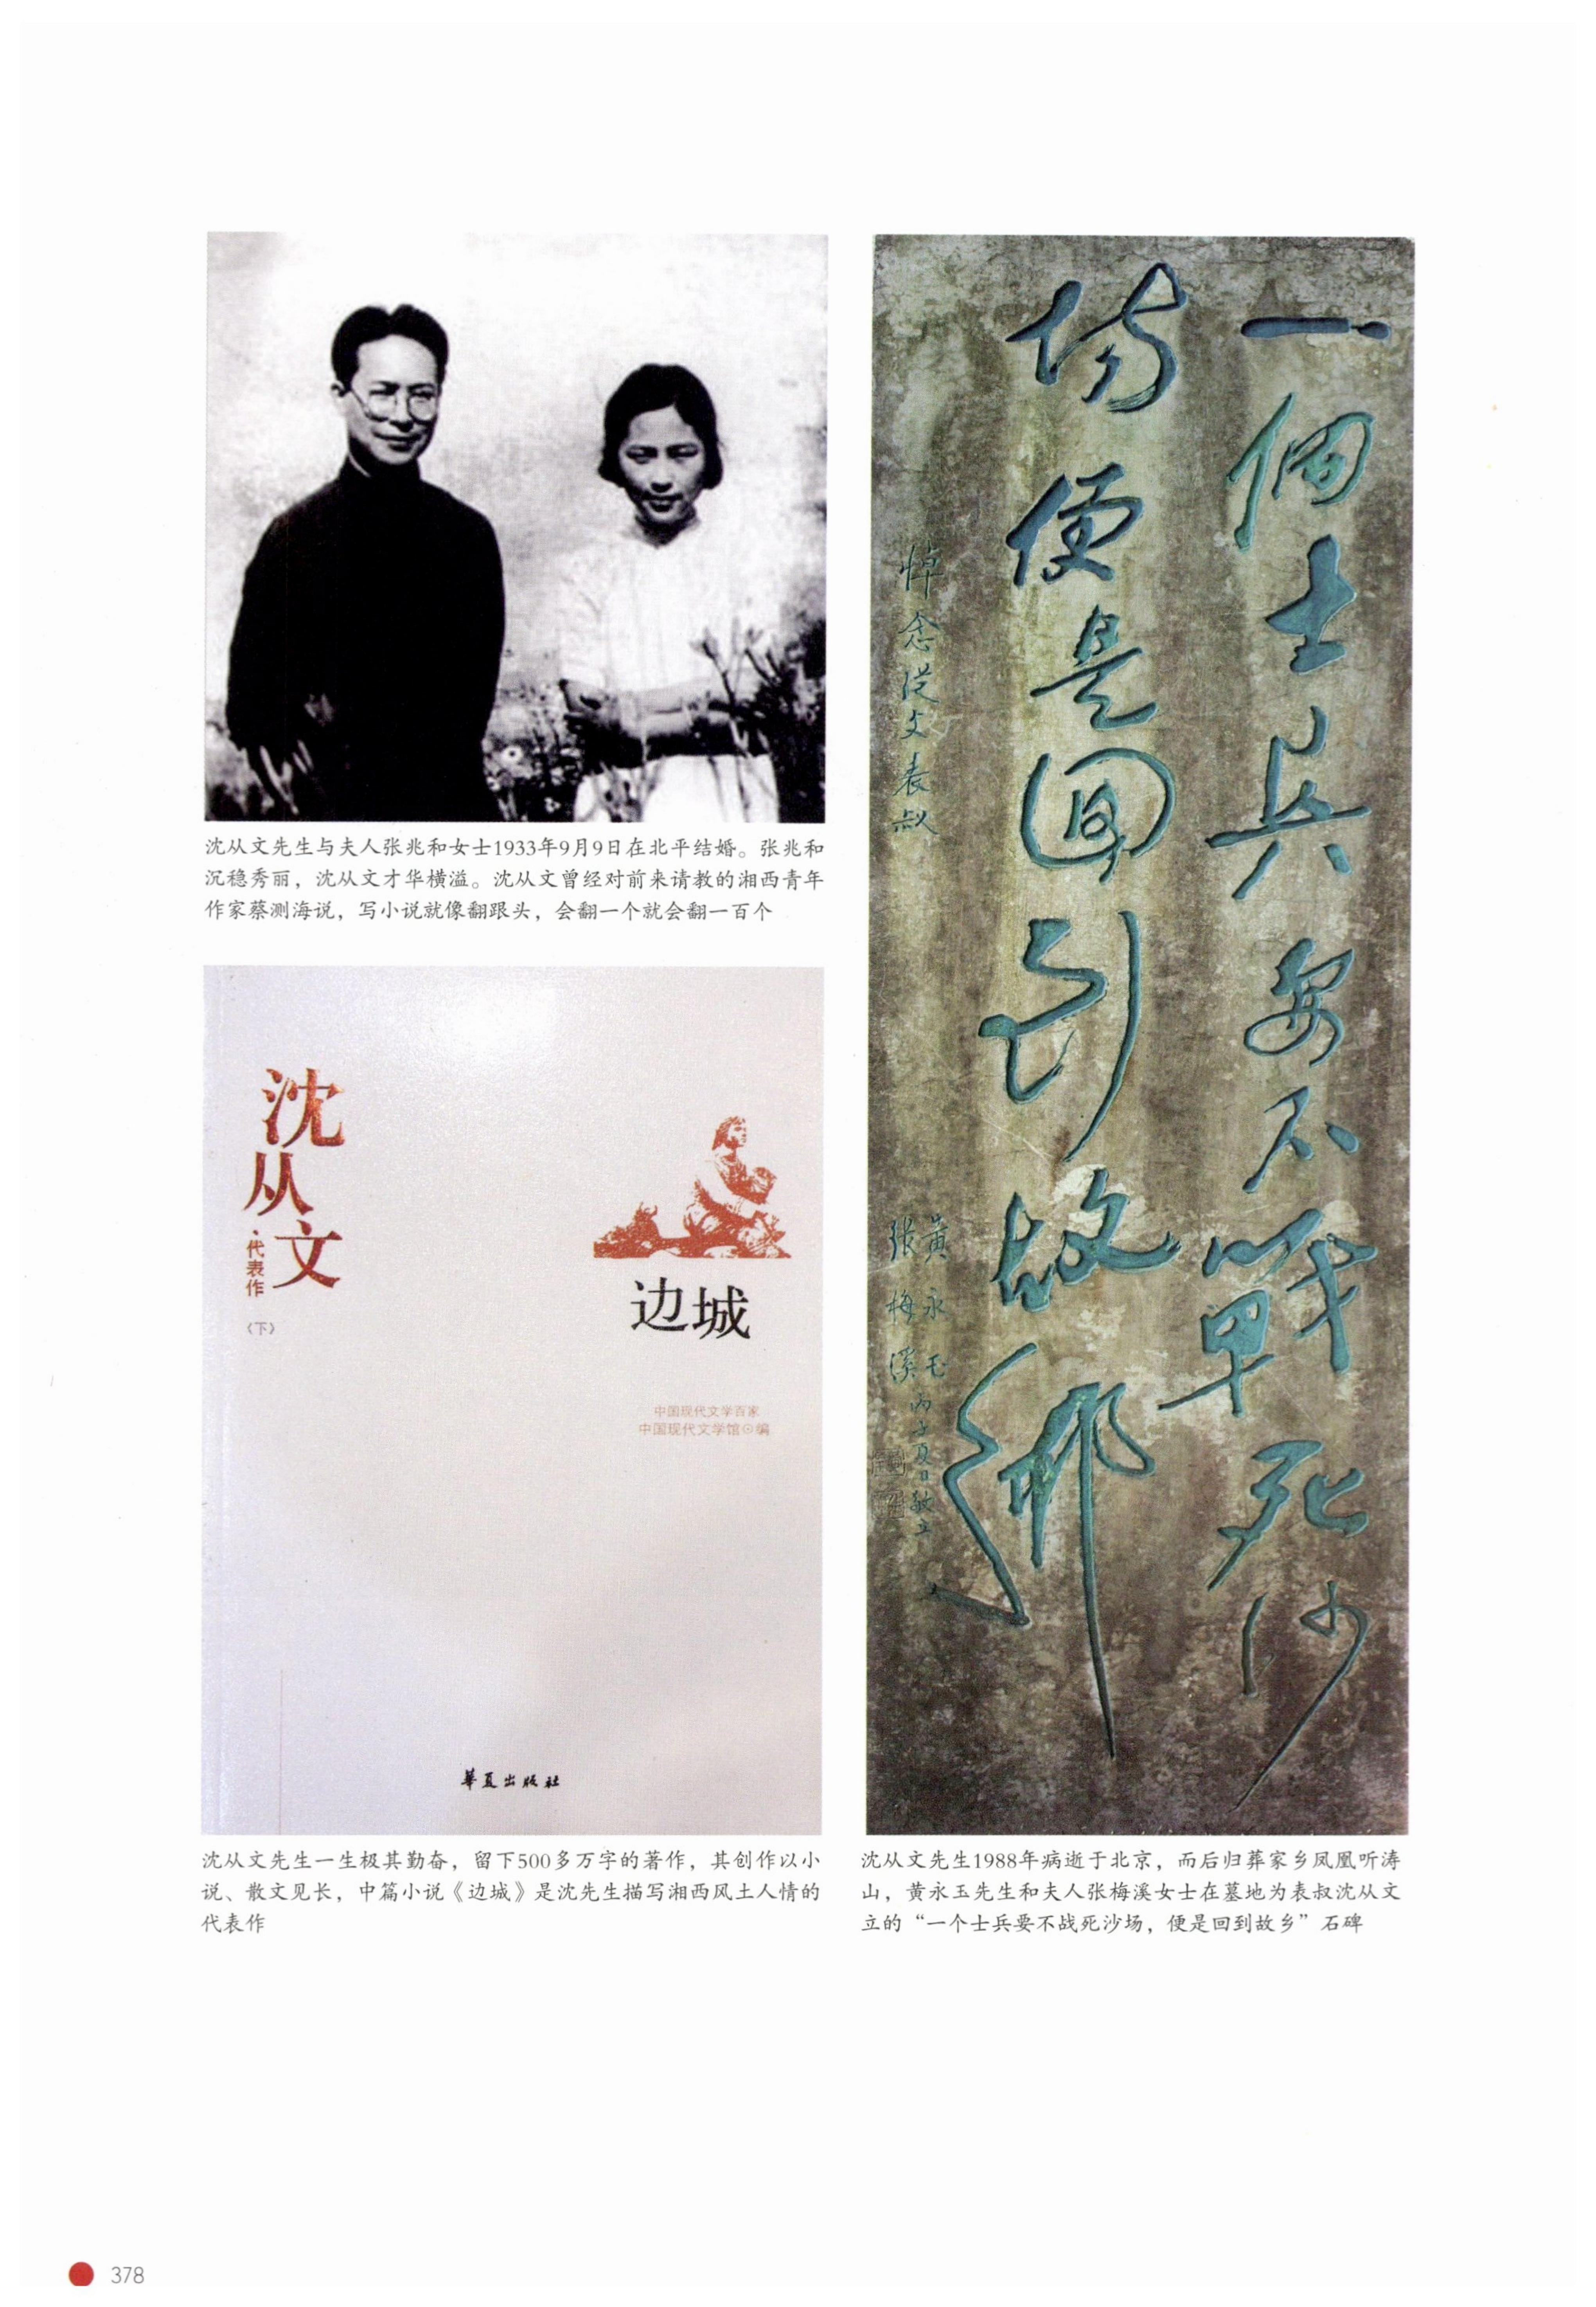 沈从文先生与夫人张兆和女士1933年9月9日在北平结婚。张兆和
沉稳秀丽，沈从文才华横溢。沈从文曾经对前来请教的湘西青年
作家蔡测海说，写小说就像翻跟头，会翻一个就会翻一百个
沈从文
·代表作
《下》
边城
中国现代文学百家
中国现代文学馆⊙编
華夏出版社
沈从文先生一生极其勤奋，留下500多万字的著作，其创作以小
说、散文见长，中篇小说《边城》是沈先生描写湘西风土人情的
代表作
一個士兵要不戰死沙
場便是回到故鄉
悼念從文表叔
黃永玉 丙子夏日敬立
張梅溪
沈从文先生1988年病逝于北京，而后归葬家乡凤凰听涛
山，黄永玉先生和夫人张梅溪女士在墓地为表叔沈从文
立的“一个士兵要不战死沙场，便是回到故乡”石碑
378